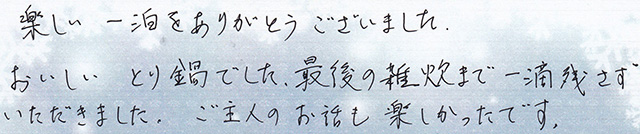 楽しい 一泊をありがとうございました.
おいしい とり鍋でした、最後の雑炊まで一滴残さず
いただきました. ご主人のお話も楽しかったです.